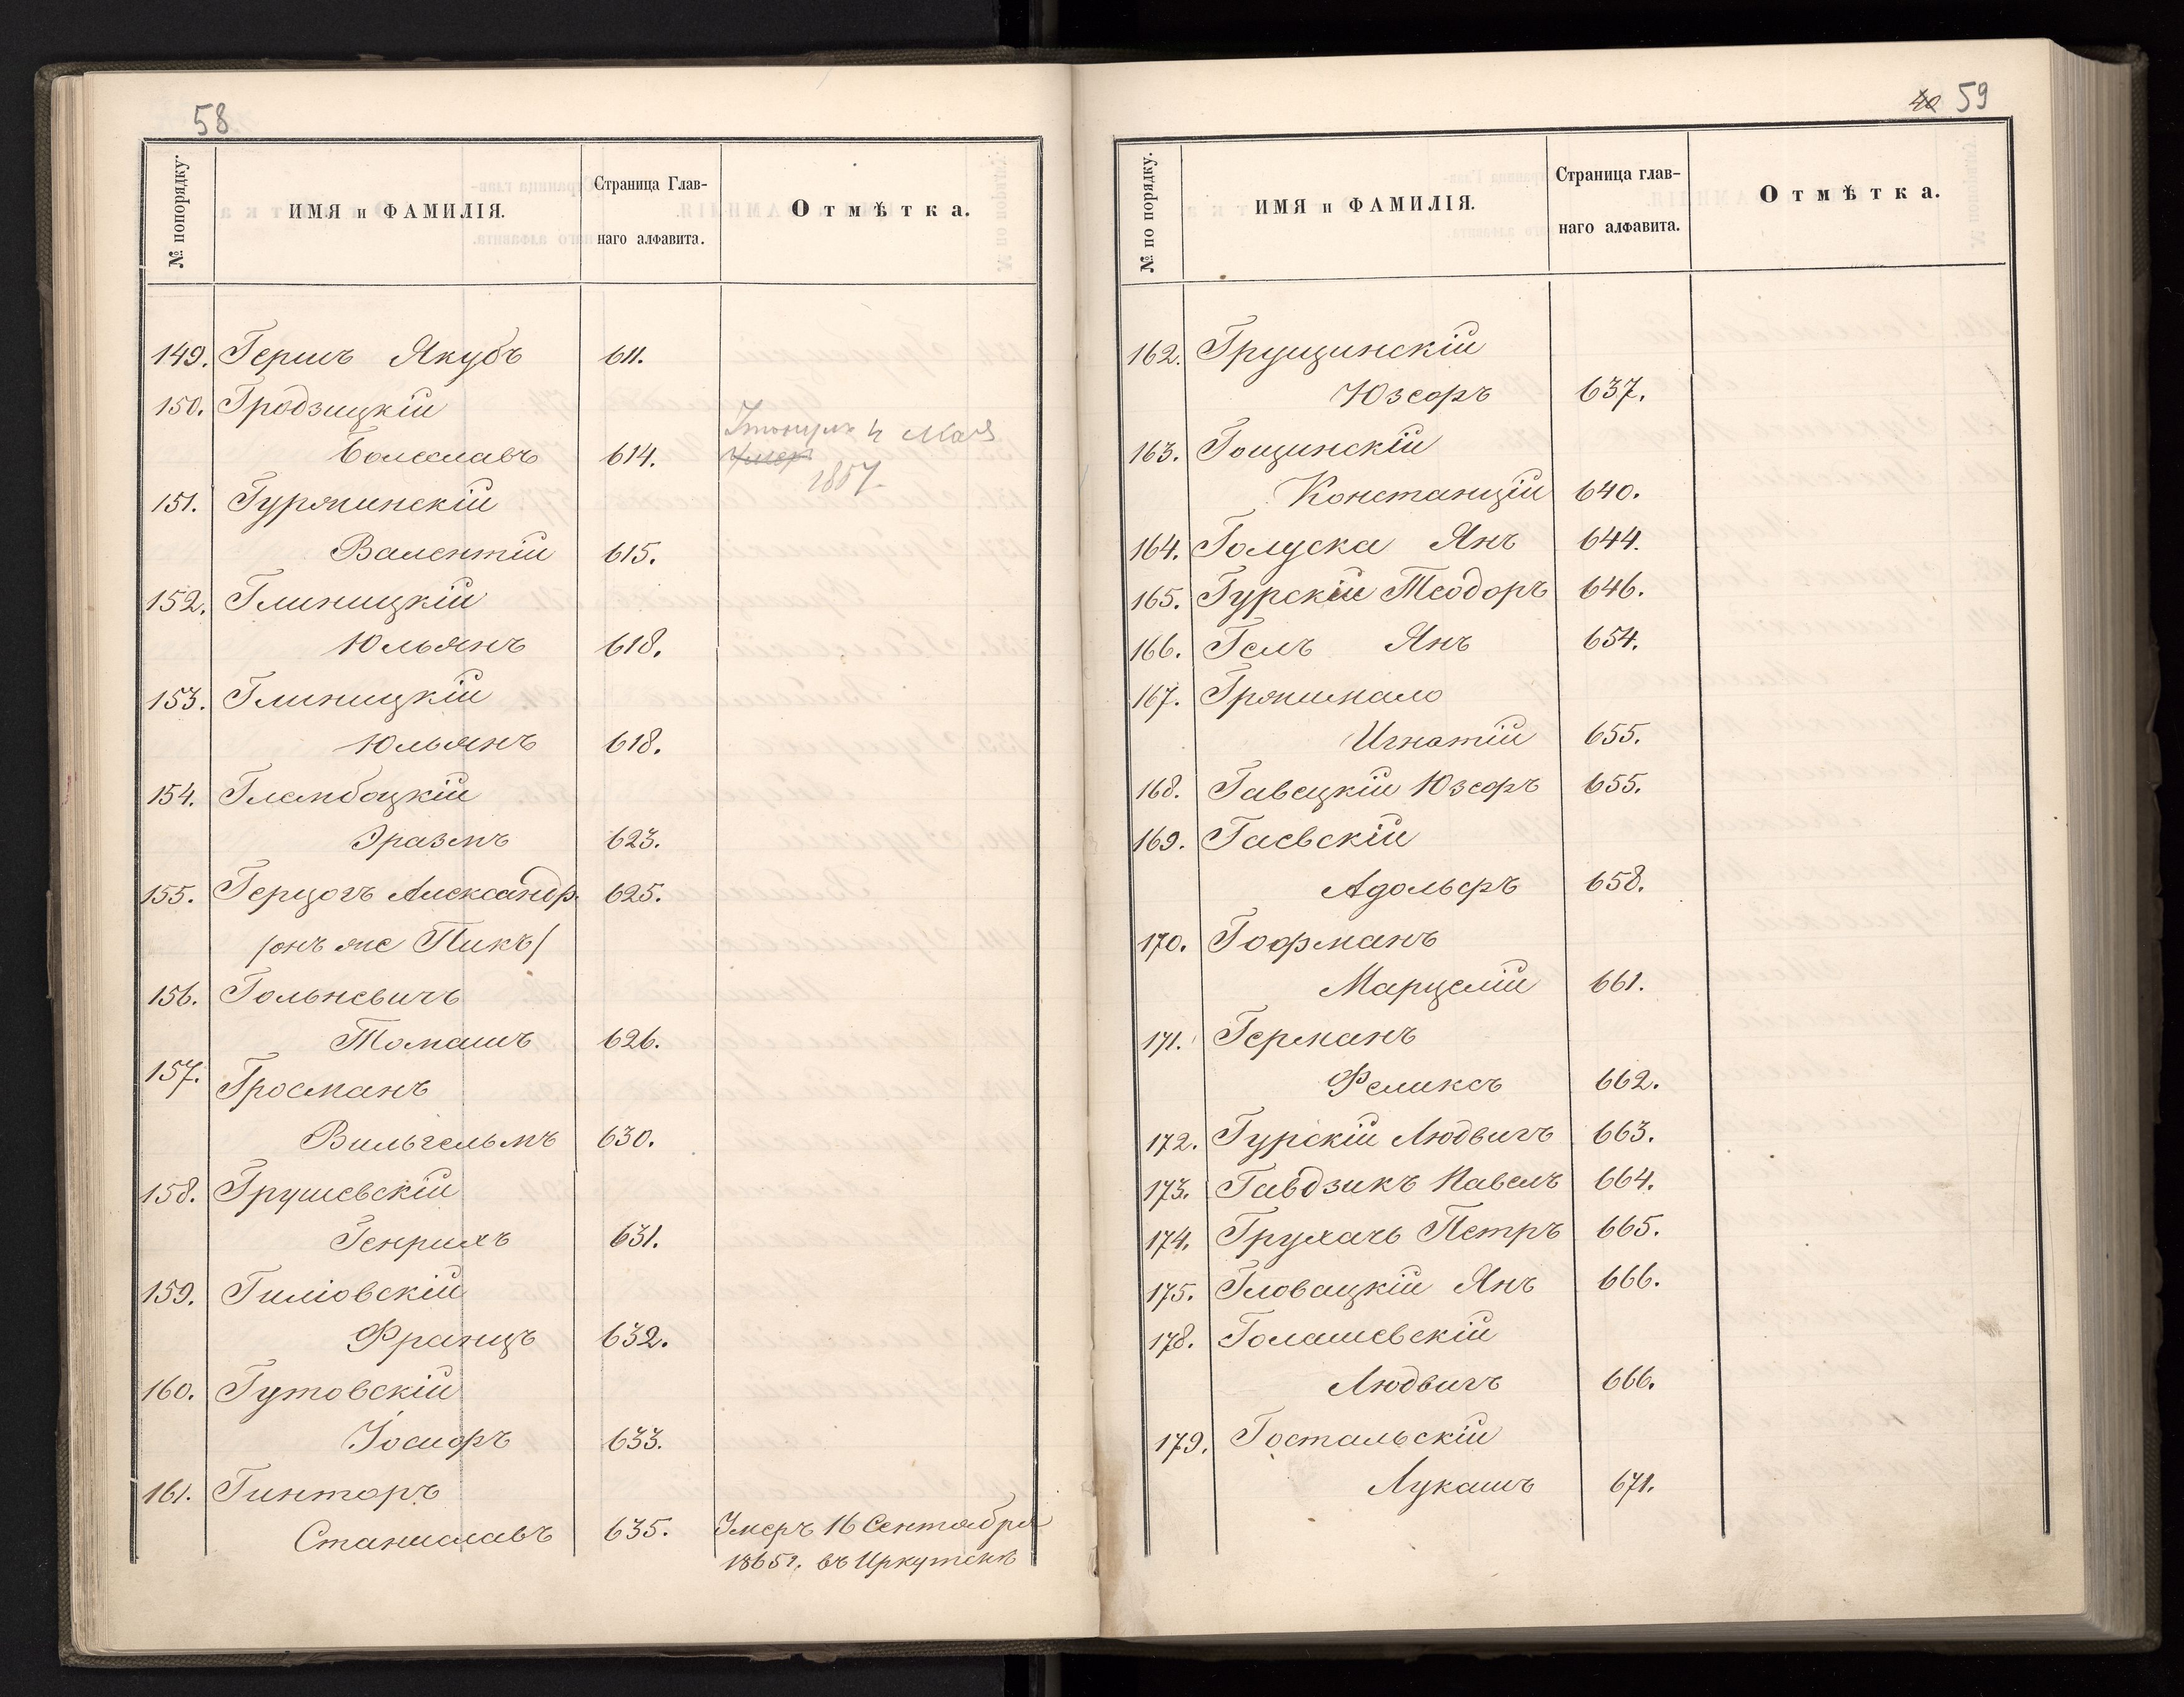 58
№ попорядку.
ИМЯ и ФАМИЛІЯ.
Страница Глав-
наго алфавита.
Отмѣтка.
149. Гершъ Якубъ 611.
150. Гродзицкій
Болеславъ 614. Утонулъ 4 Мая
Умеръ
1857.
151. Гуржинскій
Валентій 615.
152. Глиницкій
Юльянъ 618.
153. Глиницкій
Юльянъ 618.
154. Глембоцкій
Эразмъ 623.
155. Герцогъ Александр. 625.
/онъ же Пикъ/
156. Гольневичъ
Томашъ 626.
157. Гросманъ
Вильгельмъ 630.
158. Грушевскій
Генрихъ 631.
159. Гиліовскій
Францъ 632.
160. Гутовскій
Іосифъ 633.
161. Гинторъ
Станиславъ 635. Умеръ 16 Сентября
1865 г. въ Иркутскѣ
40 59
№ по порядку.
ИМЯ и ФАМИЛІЯ.
Страница глав-
наго алфавита.
Отмѣтка.
162. Грущинскій
Юзефъ 637.
163. Гощинскій
Констанцій 640.
164. Голуска Янъ 644.
165. Гурскій Теодоръ 646.
166. Гелъ Янъ 654.
167. Гржимало
Игнатій 655.
168. Гавецкій Юзефъ 655.
169. Гаевскій
Адольфъ 658.
170. Гофманъ
Марцелій 661.
171. Германъ
Феликсъ 662.
172. Гурскій Людвигъ 663.
173. Гавдзикъ Павелъ 664.
174. Грухачъ Петръ 665.
175. Гловацкій Янъ 666.
178. Голашевскій
Людвигъ 666.
179. Гостальскій
Лукашъ 671.